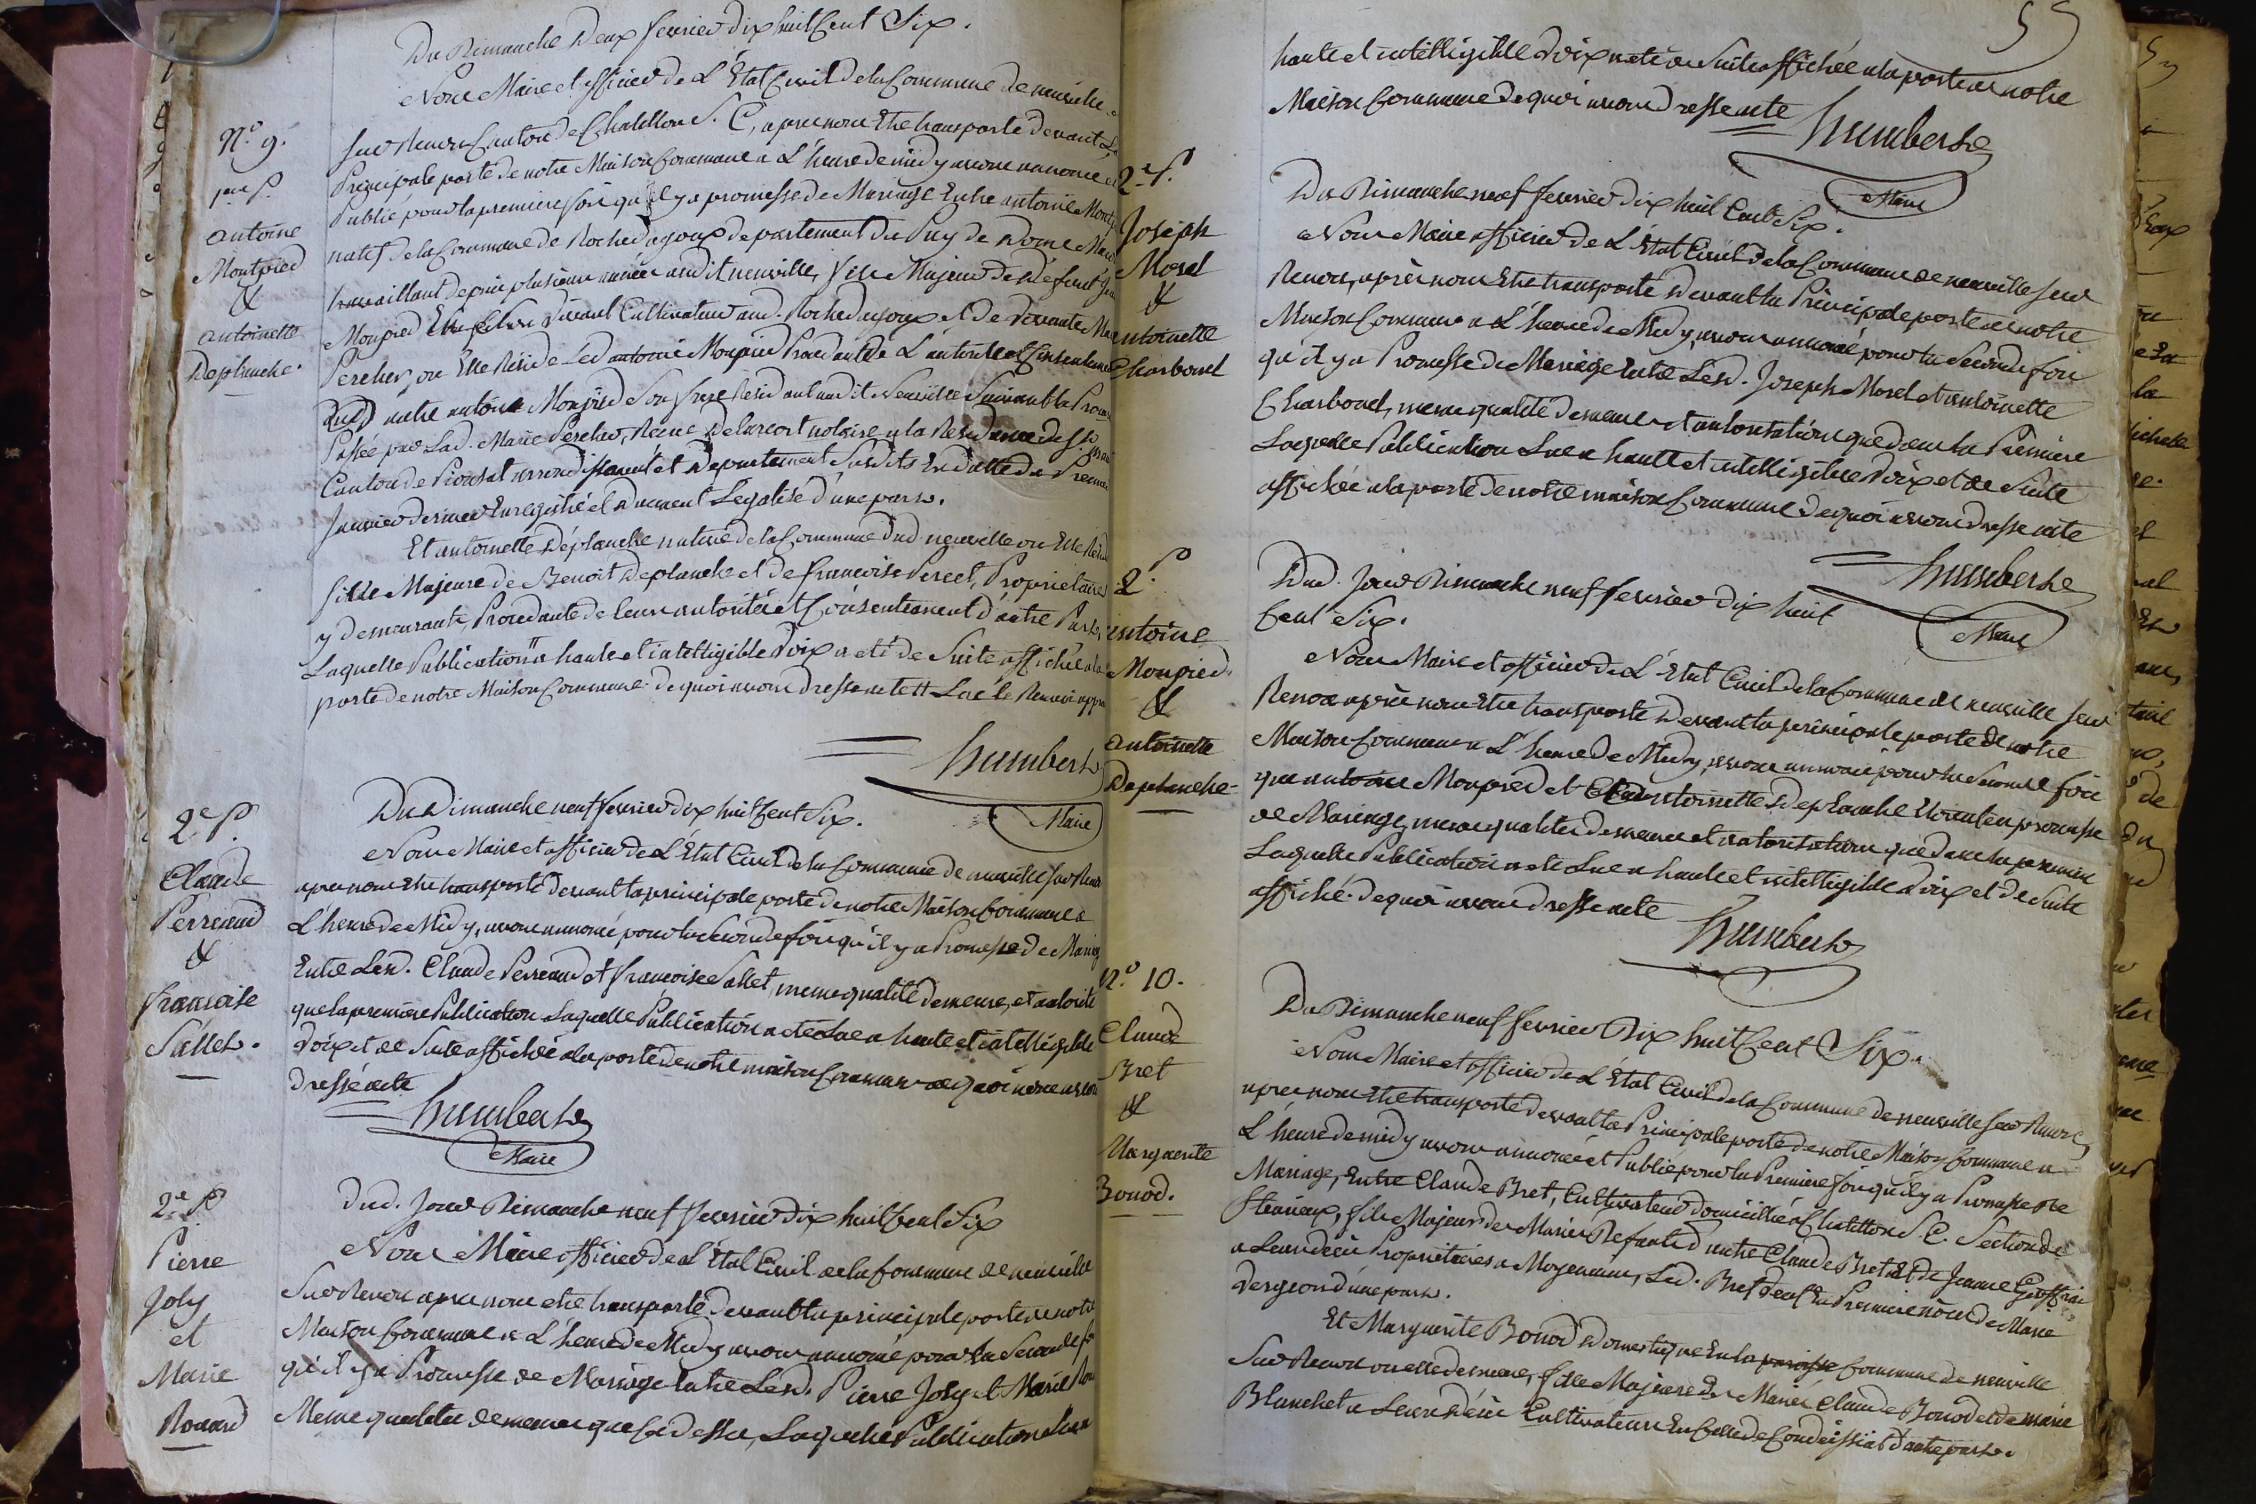 Du Dimanche deux fevrier dix huit Cent Six.
N.o 9.
1ere P.
antoine
Montpied
&
antoinette
Deplanche.
Nous Maire et officier de L'Etat Civil de la Commune de neuville
sur Renon Canton de Chatillon S. C, apres nous Etre transporté devant La
Principale porte de notre Maison Commune a L'heure de midy avons annoncé et
Publié pour la premiere fois qu'il y a promesse de Mariage Entre antoine Mont
natif de la Commune de Roche dagoux departement du Puy de Dome
travaillant depuis plusieurs années audit neuville, fils Majeur de défunt
Monpied En son vivant Cultivateur aud. Roche dagoux et de vivante
Percher, ou Elle Réside Led antoine Monpied Procedant de L'autorité et Consentement
dud autre antoine Monpied Son frere Résidant audit Neuville Suivant la
Passée par Lad. Marie Percher, Recue Delarcort notaire a la Residence de
Canton de Pionsat arrondissement et Departement Susdits En datte du Premier
Janvier dernier Enregistré et duement Legalisé d'une part.
Et antoinette Déplanche native de la Commune dud neuville ou Elle Réside
fille Majeure de Benoit Deplanche et de francoise Perret, Proprietaires
y demeurants, Procedante de leurs autorité et Consentement d'autre Part,
Laquelle Publication # a haute et intelligible Voix a eté de Suite affichée a la
porte de notre Maison Commune de quoi avons dressé acte # Lue le Renvoi appr
Humbert
Maire
2.e P.
Claude
Perreaud
&
francoise
Sallet.
Du Dimanche neuf fevrier dix huit Cent Six.
Nous Maire et officier de L'Etat Civil de la Commune de neuville sur Renon
apres nous Etre transporté devant la principale porte de notre Maison Commune a
L'heure de Midy, avons annoncé pour la seconde fois qu'il y a Promesse de Mariage
Entre Lesd. Claude Perreaud et francoise Sallet, meme qualité demeure, et autorité
que la premiere Publication Laquelle Publication a eté Lue a haute et intelligible
Voix et de Suite affichée a la porte de notre maison Commune de quoi nous avons
dressé acte
Humbert
Maire
2.e P.
Pierre
Joly
et
Marie
Dud. Jour Dimanche neuf fevrier dix huit Cent Six
Nous Maire officier de L'Etat Civil de la Commune de neuville
Sur Renon apres nous etre transporté devant la principale porte de notre
Maison Commune a L'heure de Midy avons annoncé pour la Seconde fois
qu'il y a Promesse de Mariage Entre Lesd. Pierre Joly et Marie
Meme qualitée demeures que Ci dessus, Laquelle Publication Lue a
55
haute et intelligible Voix a eté de Suite affichée a la porte de notre
Maison Commune de quoi avons dressé acte
Humbert
Maire
2.e P.
Joseph
Morel
&
antoinette
Charbonet
Du Dimanche neuf fevrier dix huit Cent Six.
Nous Maire officier de L'Etat Civil de la Commune de neuville sur
Renon, après nous Etre transporté devant la Principale porte de notre
Maison Commune a L'heure de Midy, avons annoncé pour la Seconde fois
qu'il y a Promesse de Mariage Entre Lesd. Joseph Morel et antoinette
Charbonet, meme qualité demeure et autorisation que dans la Premiere
Laquelle Publication Lue a haute et intelligible Voix et de Suite
affichée a la porte de notre maison Commune de quoi avons dressé acte
Humbert
Maire
2. P
antoine
Monpied
&
antoinette
Deplanche
Dud. Jour Dimanche neuf fevrier dix huit
Cent Six.
Nous Maire et officier de L'Etat Civil de la Commune de neuville sur
Renon après nous Etre transporté devant la principale porte de notre
Maison Commune a L'heure de Midy, avons annoncé pour la Seconde fois
que antoine Monpied et antoinette Deplanche Etoient en promesse
de Mariage, meme qualitée demeure et autorisation que dans la premiere
Laquelle Publication a eté Lue a haute et intelligible Voix et de Suite
affiché. de quoi avons dressé acte
Humbert
N.o 10.
Claude
Bret
&
Marguerite
Bonod.
Du Dimanche neuf fevrier Dix huit Cent Six.
Nous Maire et officier de L'Etat Civil de la Commune de neuville sur Renon,
apres nous Etre transporté devant la Principale porte de notre Maison Commune a
L'heure de midy avons annoncé et Publié pour la Premiere fois qu'il y a Promesse de
Mariage, Entre Claude Bret, Cultivateur domicillié a Chatillon S. C. Section de
fleurieux, fils Majeur des Mariés Defunts d'autre Claude Bret et de Jeanne Geoffrai
a Leurs décès Proprietaires a Led. Bret Veuf En Premiere nôces de Marie
Vergeon d'une part.
Et Marguerite Bonod Domestique En la paroisse Commune de neuville
Sur Renon ou elle demeure, fille Majeure des Mariés Claude Bonod et de marie
Blanchet a Leurs décès Cultivateurs En Celle de Condeissiat d'autre part.